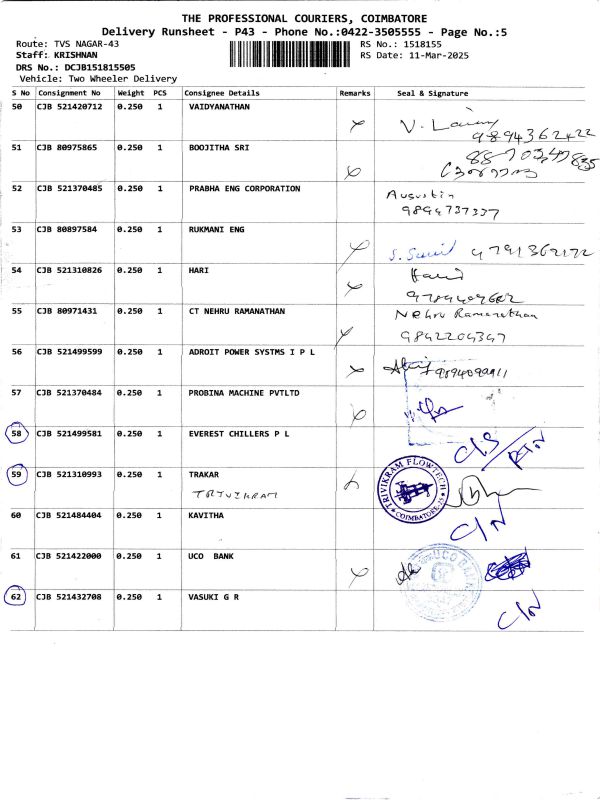 THE PROFESSIONAL COURIERS, COIMBATORE
Delivery Runsheet - P43 - Phone No.:0422-3505555 - Page No.:5
Route: TVS NAGAR-43
RS No.: 1518155
Staff: KRISHNAN
RS Date: 11-Mar-2025
DRS No.: DCJB151815505
Vehicle: Two Wheeler Delivery
S No Consignment No Weight PCS Consignee Details Remarks Seal & Signature
50 CJB 521420712 0.250 1 VAIDYANATHAN
9894362422
51 CJB 80975865 0.250 1 BOOJITHA SRI
52 CJB 521370485 0.250 1 PRABHA ENG CORPORATION Augustin
9894737337
53 CJB 80897584 0.250 1 RUKMANI ENG
9791362172
54 CJB 521310826 0.250 1 HARI
55 CJB 80971431 0.250 1 CT NEHRU RAMANATHAN Nehru Ramanathan
9842209347
56 CJB 521499599 0.250 1 ADROIT POWER SYSTMS I P L
57 CJB 521370484 0.250 1 PROBINA MACHINE PVTLTD
58 CJB 521499581 0.250 1 EVEREST CHILLERS P L
C/S
RTN
59 CJB 521310993 0.250 1 TRAKAR
TRIVIKRAM
TRIVIKRAM FLOWTECH
COIMBATORE-25
60 CJB 521484404 0.250 1 KAVITHA C/N
61 CJB 521422000 0.250 1 UCO BANK
UCO BANK
62 CJB 521432708 0.250 1 VASUKI G R C/N